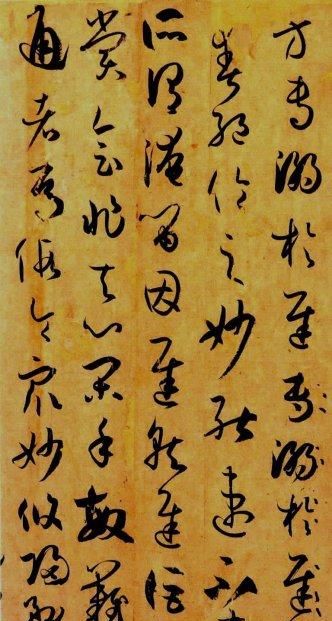 方專溺於遲專溺於遲
爽絕倫之妙能速不
所謂淹留因遲就遲詎
賞會非其心閑手敏難
通者焉假令眾妙攸歸務